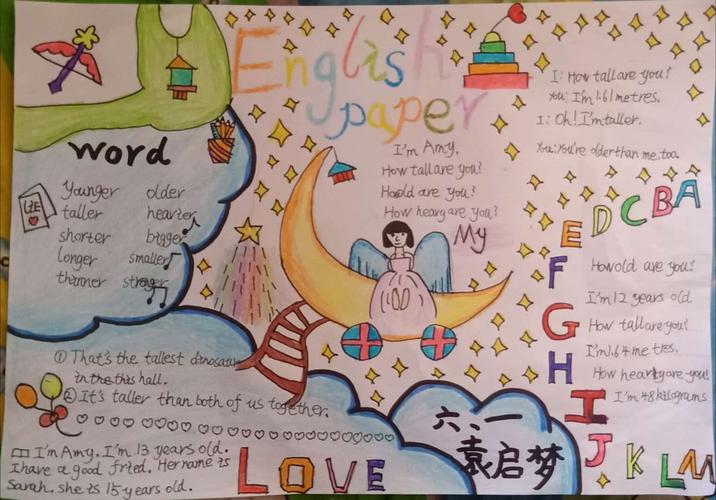 English
paper
I: How tall are you?
You: I'm 1.61 metres.
I: Oh! I'm taller.
You: You're older than me, too.
word
Younger older
taller heavier
shorter bigger
longer smaller
thinner stronger
I'm Amy.
How tall are you?
How old are you?
How heavy are you?
My
A
B
C
D
E
F
G
H
I
J
K
L
M
How old are you?
I'm 12 years old
How tall are you?
I'm 1.64 metres.
How heavy are you?
I'm 48 kilograms
① That's the tallest dinosaur
in this hall.
② It's taller than both of us together.
I'm Amy. I'm 13 years old.
I have a good fried. Her name is
Sarah. she is 15 years old.
LOVE
六、一
袁启梦